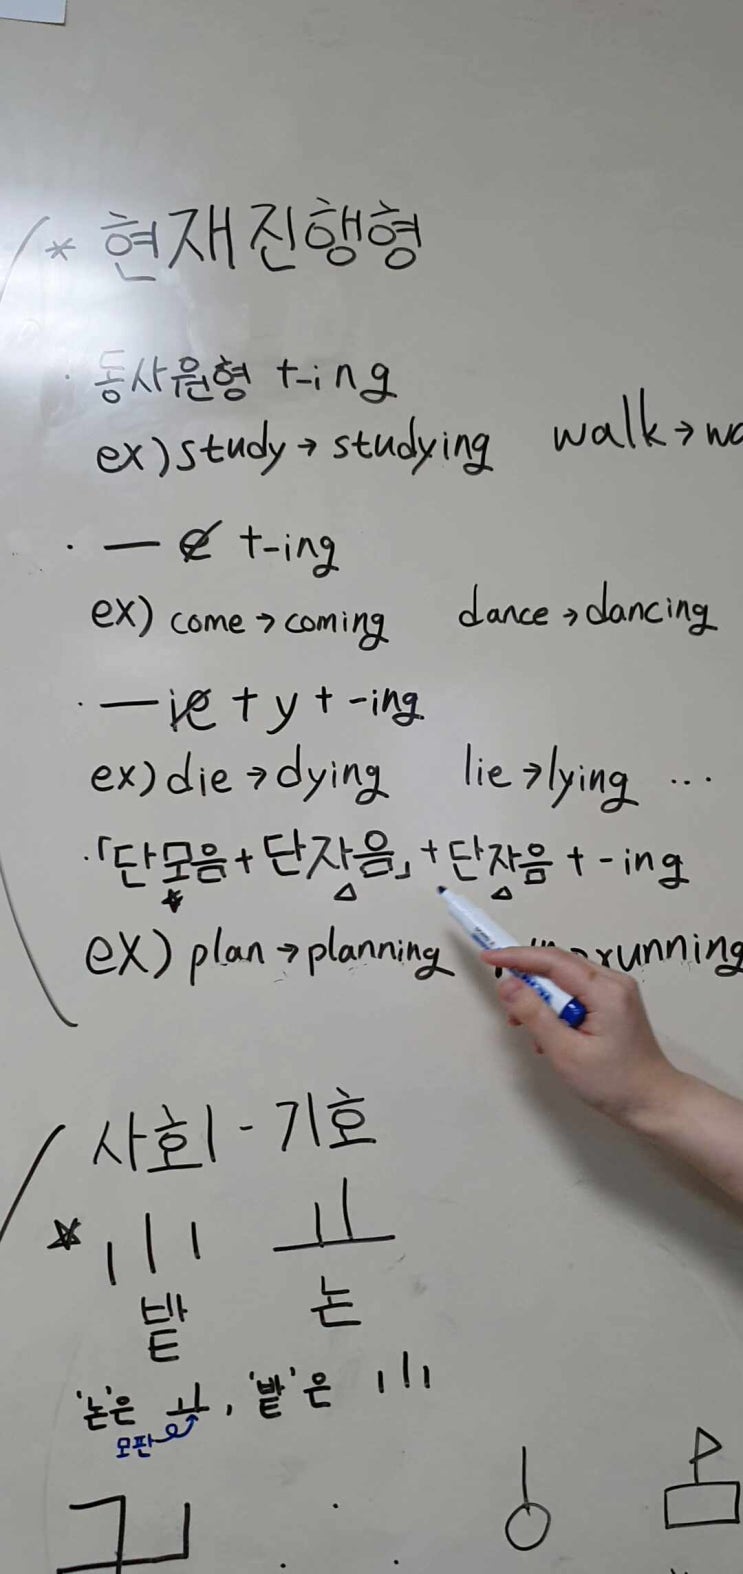 * 현재진행형
· 동사원형 +-ing
ex) study → studying walk →
· — e +-ing
ex) come → coming dance → dancing
· — ie + y + -ing
ex) die → dying lie → lying ...
·「단모음 + 단자음」+ 단자음 + -ing
ex) plan → planning → running
사회 - 기호
밭 논
'논'은 , '밭'은
모판